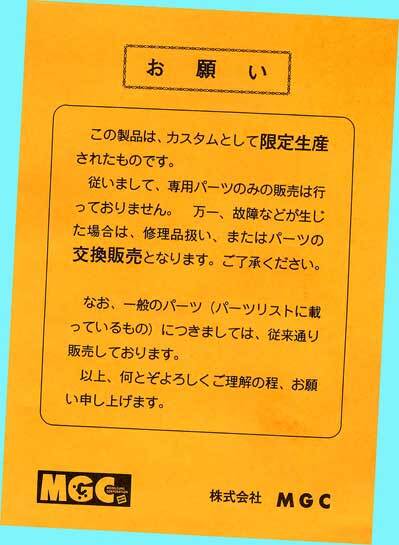 お願い
この製品は、カスタムとして限定生産
されたものです。
従いまして、専用パーツのみの販売は行
っておりません。 万一、故障などが生じ
た場合は、修理品扱い、またはパーツの
交換販売となります。ご了承ください。
なお、一般のパーツ（パーツリストに載
っているもの）につきましては、従来通り
販売しております。
以上、何とぞよろしくご理解の程、お願
い申し上げます。
MGC
株式会社 MGC